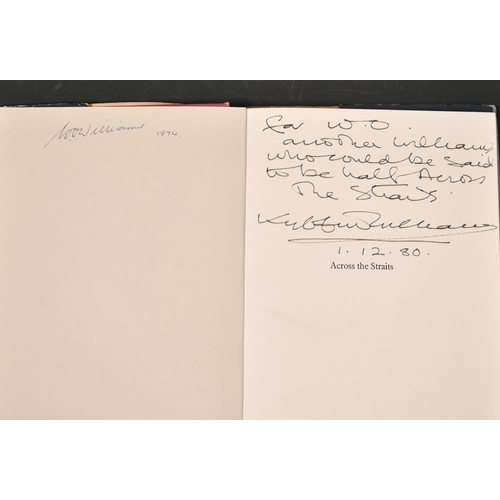 WOWilliams 1974.
For W.O.
another Williams
who could be said
to be half Across
The Straits.
Kyffin Williams
1.12.80.
Across the Straits